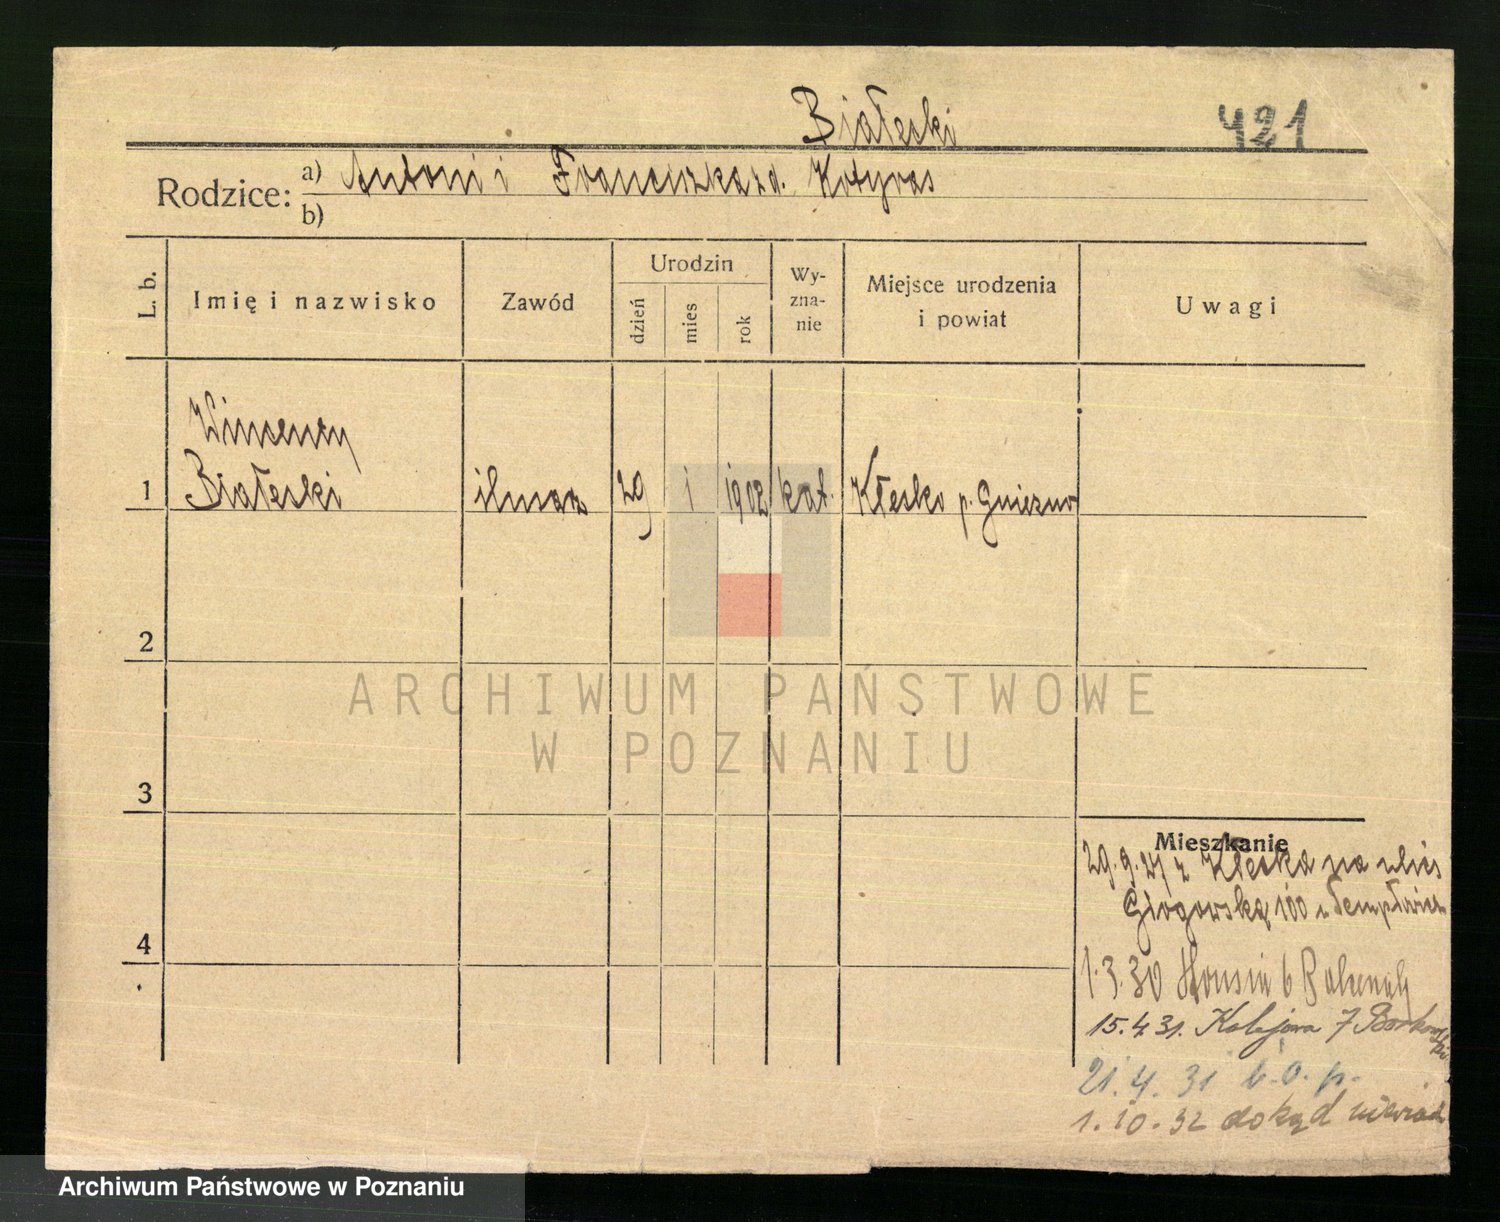 Białeski
421
Rodzice: a) Antoni i Franciszka zd. Kotyras
b)
L. b.
Imię i nazwisko
Zawód
Urodzin
dzień
mies
rok
Wy-
zna-
nie
Miejsce urodzenia
i powiat
Uwagi
Wincenty
1 Białeski ślusarz 29 1 1902 kat. Kłecko p. Gniezno
2
ARCHIWUM PAŃSTWOWE
W POZNANIU
3
4
Mieszkanie
29.9.27 z Kłecka na ulicę
Głogowską 100
1.3.30 6
15.4.31. Kolejowa 7 Borkowski
21.4.31 b.o.p.
1.10.32 dokąd niewiad
Archiwum Państwowe w Poznaniu